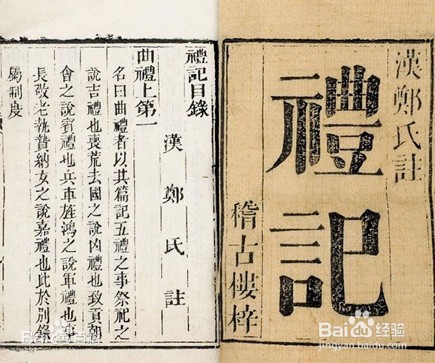 漢鄭氏註
禮記
稽古樓梓
禮記目錄
漢鄭氏註
曲禮上第一
名曰曲禮者以其篇記五禮之事祭祀之
說吉禮也喪荒去國之說凶禮也致貢朝
會之說賓禮也兵車旌鴻之說軍禮也事
長敬老執贄納女之說嘉禮也此於別錄
屬制度
Baidu经验
jingyan.baidu.com